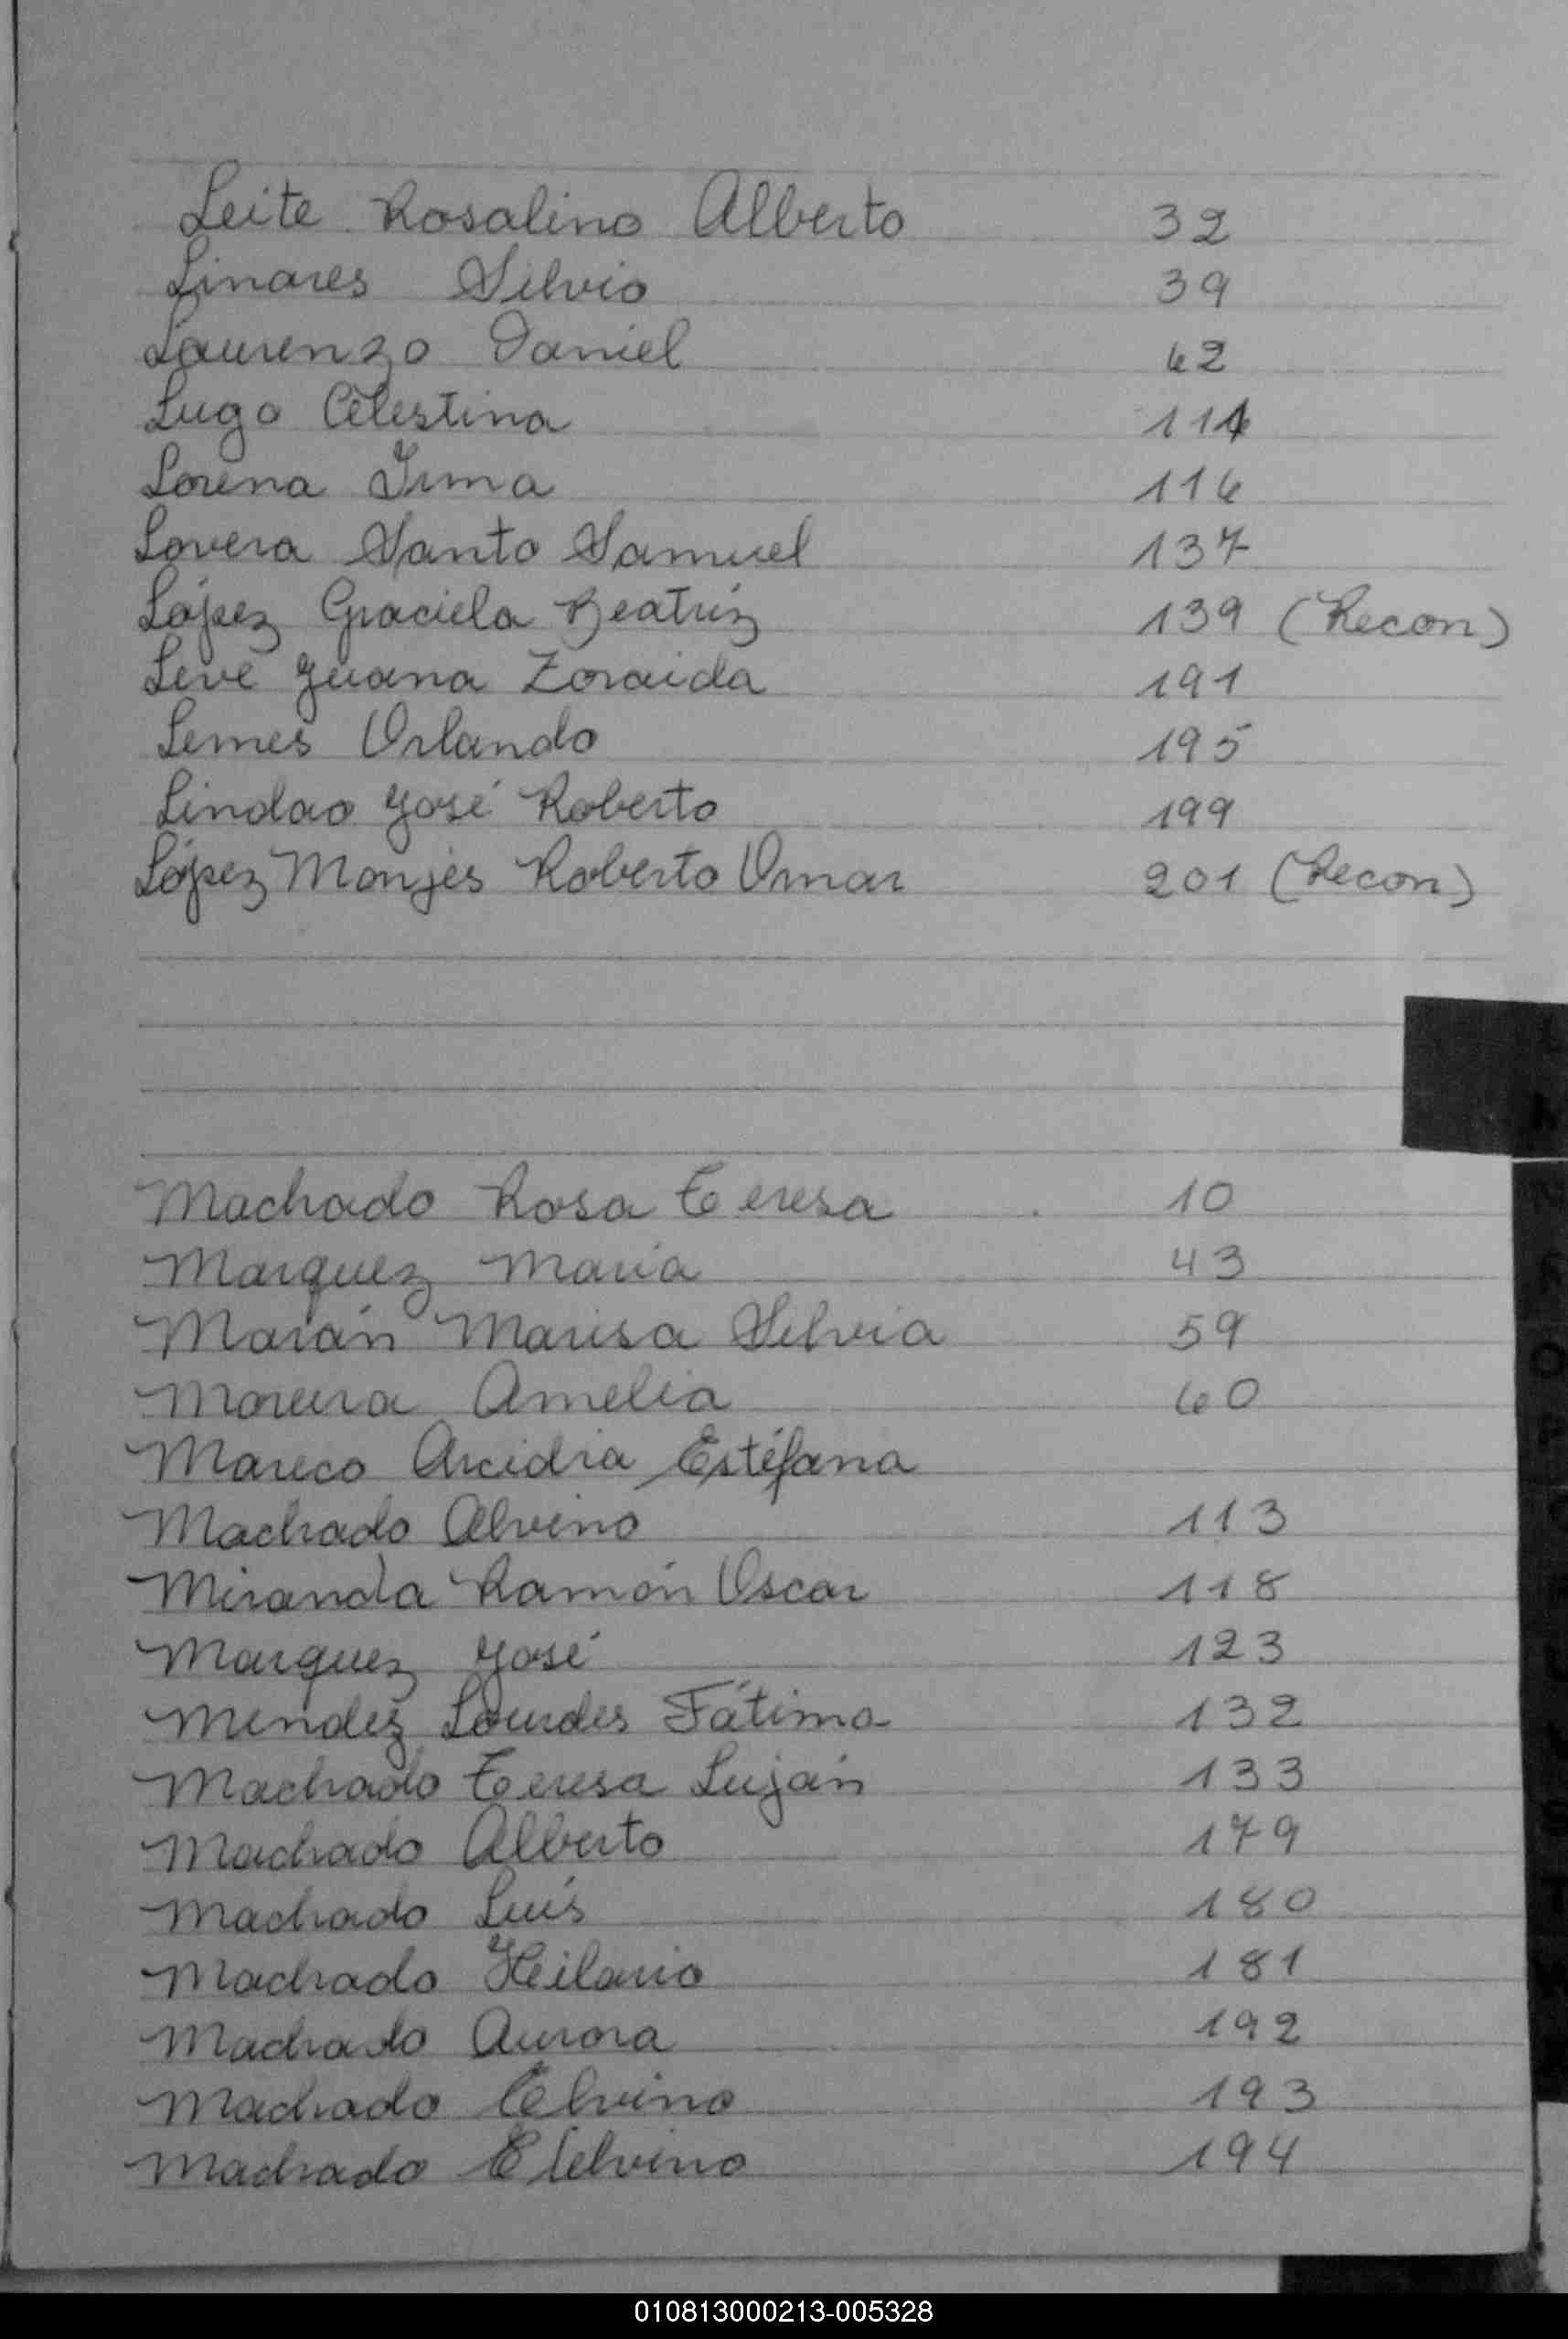 Leite Rosalino Alberto 32
Linares Silvio 39
Laurenzo Daniel 62
Lugo Celestina 114
Lorena Irma 116
Lovera Santo Samuel 137
López Graciela Beatriz 139 (Recon)
Leve Juana Zoraida 191
Lemes Orlando 195
Lindao José Roberto 199
López Monjes Roberto Omar 201 (Recon)
Machado Rosa Teresa 10
Marquez Maria 43
Marán Marisa Silvia 59
Moreira Amelia 60
Mareco Arcidia Estéfana
Machado Alvino 113
Miranda Ramón Oscar 118
Marquez José 123
Mendez Lourdes Fátima 132
Machado Teresa Luján 133
Machado Alberto 179
Machado Luis 180
Machado Heilario 181
Machado Aurora 192
Machado Elvino 193
Machado Etelvino 194
010813000213-005328